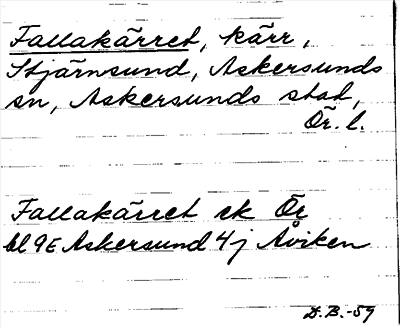 Fallakärret, kärr,
Stjärnsund, Askersunds
sn, Askersunds stad,
Ör. l.
Fallakärret ek Ör
bl 9E Askersund 4j Åviken
D.B.-59